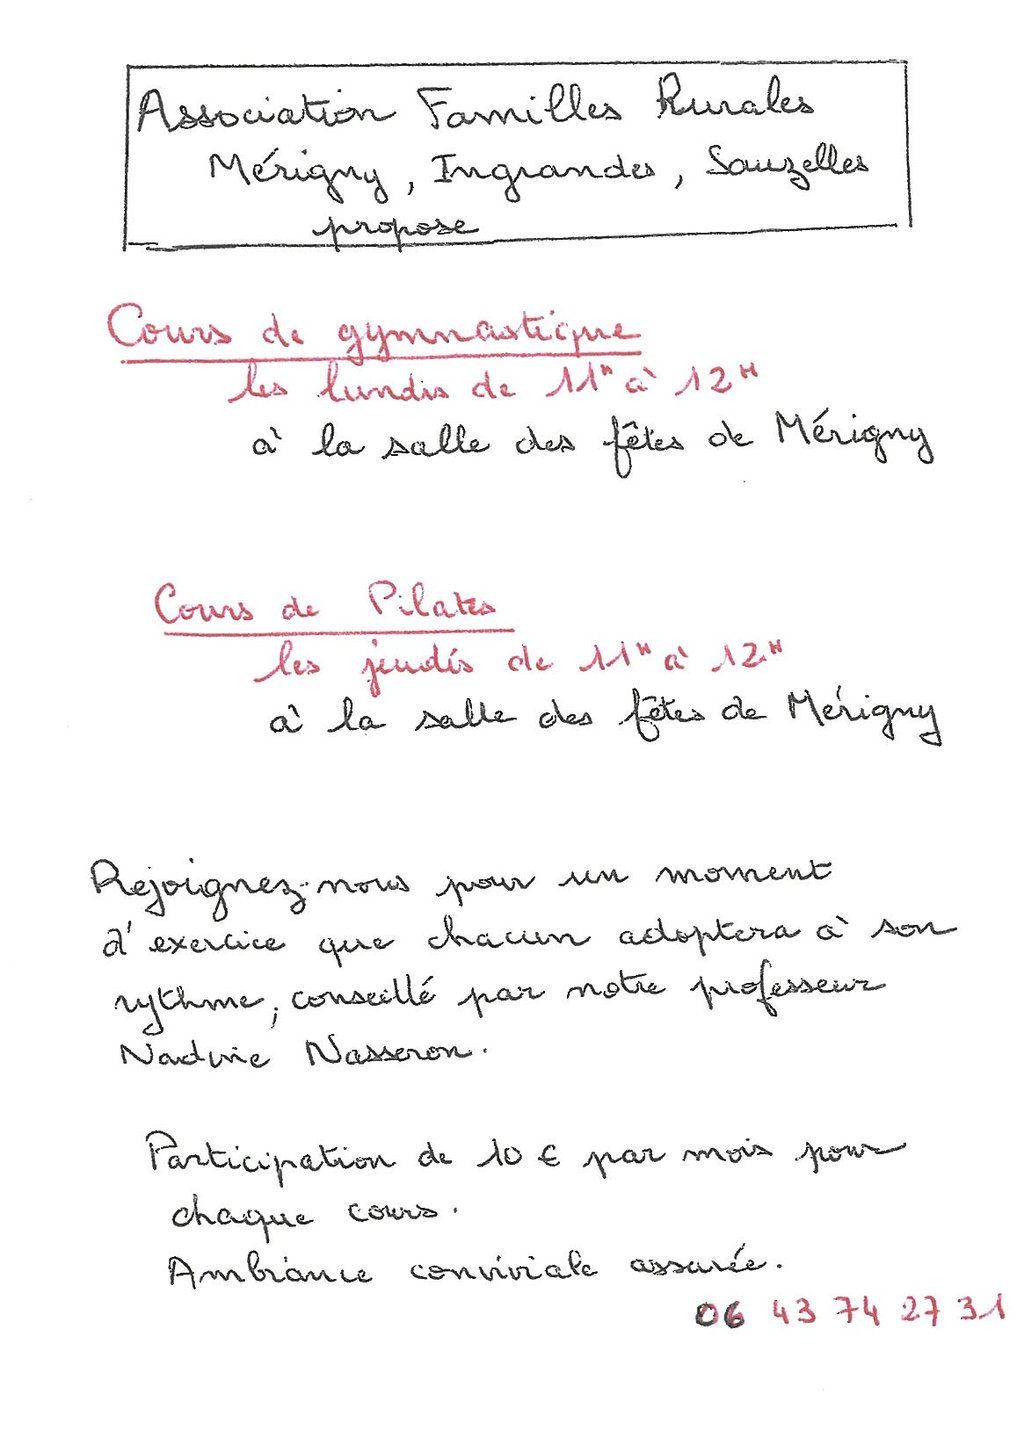 Association Familles Rurales
Mérigny, Ingrandes, Sauzelles
propose
Cours de gymnastique
les lundis de 11H à 12H
à la salle des fêtes de Mérigny
Cours de Pilates
les jeudis de 11H à 12H
à la salle des fêtes de Mérigny
Rejoignez-nous pour un moment
d'exercice que chacun adoptera à son
rythme, conseillé par notre professeur
Nadine Nasseron.
Participation de 10 € par mois pour
chaque cours.
Ambiance conviviale assurée.
06 43 74 27 31